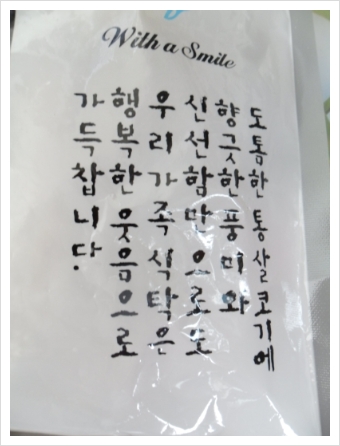 With a Smile
도톰한 통살코기에
향긋한 풍미와
신선함만으로도
우리가족 식탁은
행복한 웃음으로
가득찹니다.